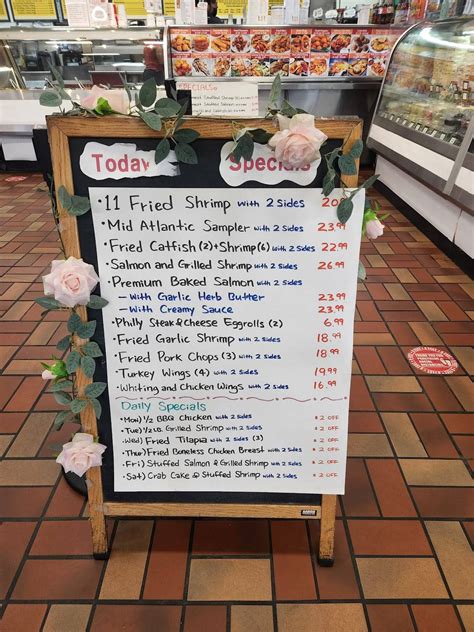 Today Specials
• 11 Fried Shrimp with 2 Sides
• Mid Atlantic Sampler with 2 Sides 23.99
• Fried Catfish (2)+Shrimp(6) with 2 Sides 22.99
• Salmon and Grilled Shrimp with 2 Sides 26.99
• Premium Baked Salmon with 2 Sides
– With Garlic Herb Butter 23.99
– With Creamy Sauce 23.99
• Philly Steak & Cheese Eggrolls (2) 6.99
• Fried Garlic Shrimp with 2 Sides 18.99
• Fried Pork Chops (3) with 2 Sides 18.99
• Turkey Wings (4) with 2 Sides 19.99
• Whiting and Chicken Wings with 2 Sides 16.99
Daily Specials
• Mon) 1/2 BBQ Chicken with 2 Sides $2 OFF
• Tue) 1/2 LB. Grilled Shrimp with 2 Sides $2 OFF
• Wed) Fried Tilapia with 2 Sides (3) $2 OFF
• Thur) Fried Boneless Chicken Breast with 2 Sides $2 OFF
• Fri) Stuffed Salmon & Grilled Shrimp with 2 Sides $2 OFF
• Sat) Crab Cake & Stuffed Shrimp with 2 Sides $2 OFF